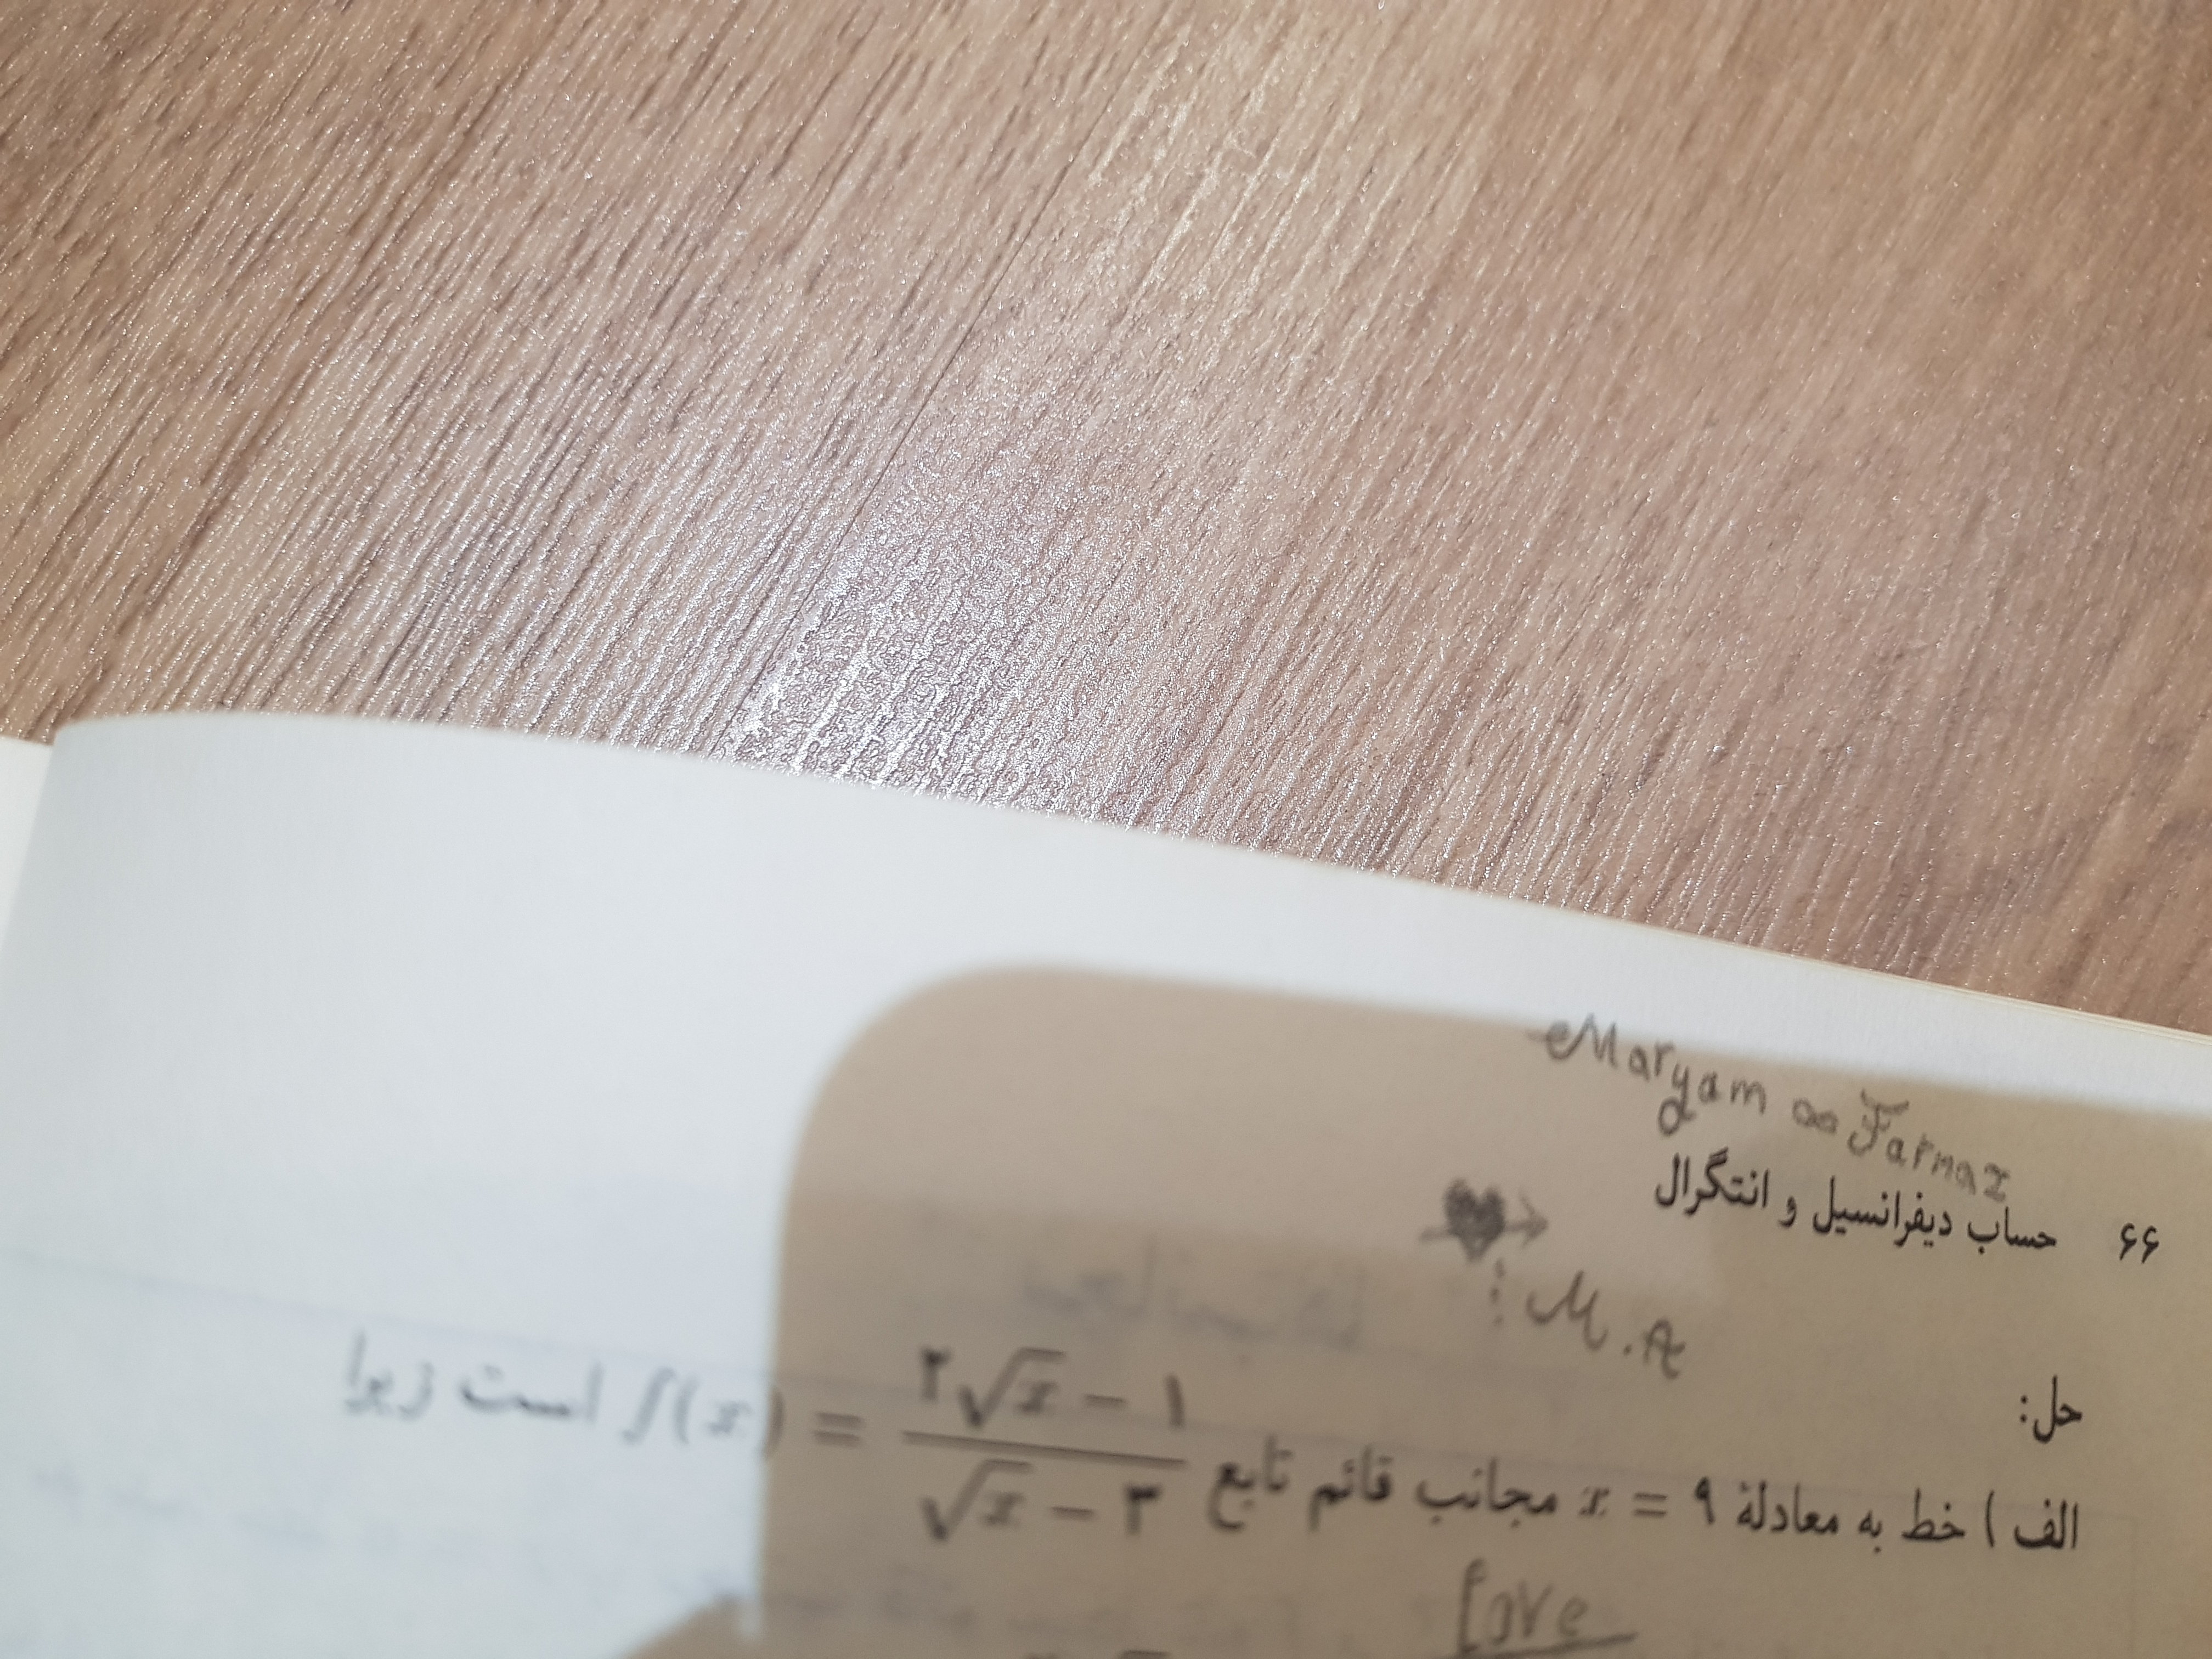 Maryam ∞ Farnaz
۶۶ حساب دیفرانسیل و انتگرال
: M.A
حل:
الف ) خط به معادلهٔ x = ۹ مجانب قائم تابع f(x) = (۲√x − ۱)/(√x − ۳) است زیرا
Love